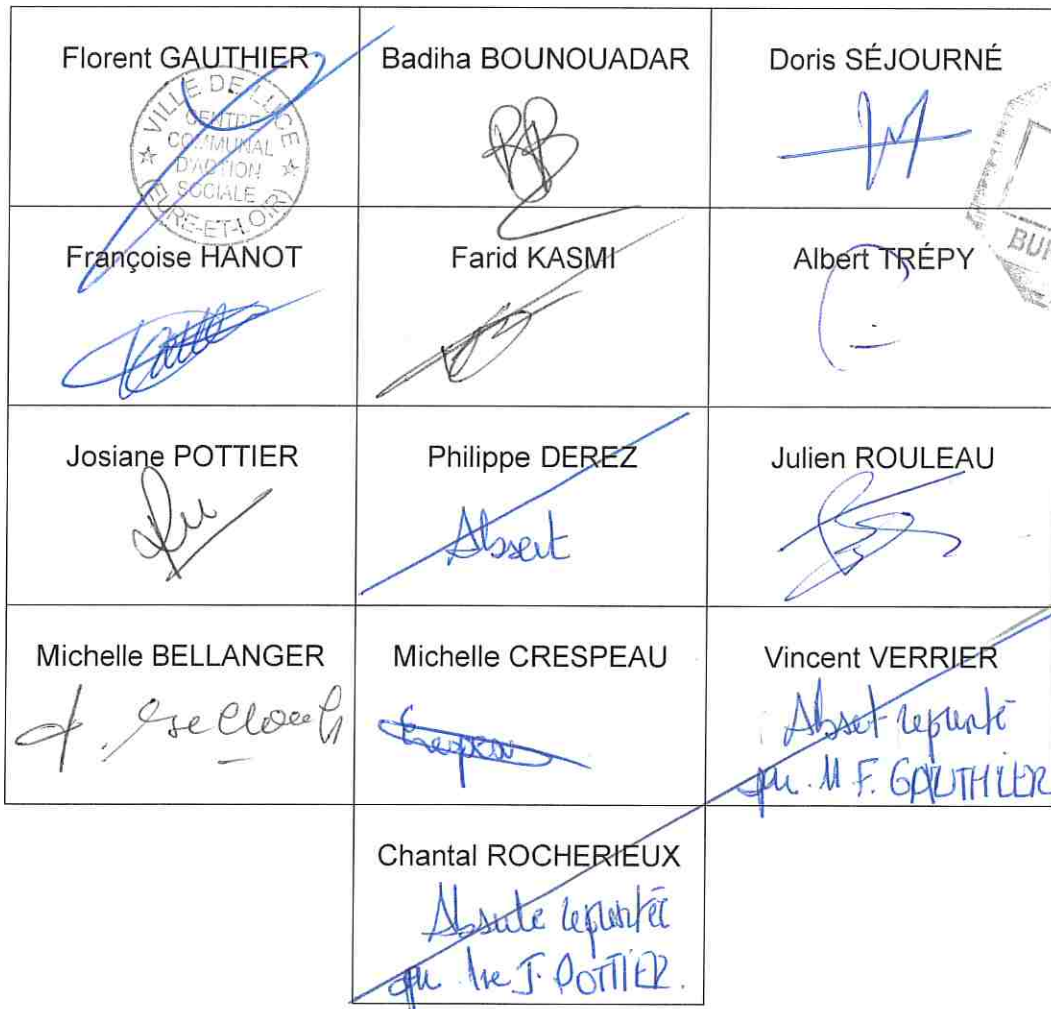 Florent GAUTHIER
VILLE DE LUCE
CENTRE
COMMUNAL
D'ACTION
SOCIALE
(EURE-ET-LOIR)
Badiha BOUNOUADAR
Doris SÉJOURNÉ
Françoise HANOT
Farid KASMI
Albert TRÉPY
Josiane POTTIER
Philippe DEREZ
Absent
Julien ROULEAU
Michelle BELLANGER
Michelle CRESPEAU
Vincent VERRIER
Absent
M F. GAUTHIER
Chantal ROCHERIEUX
Absente
J. POTTIER.